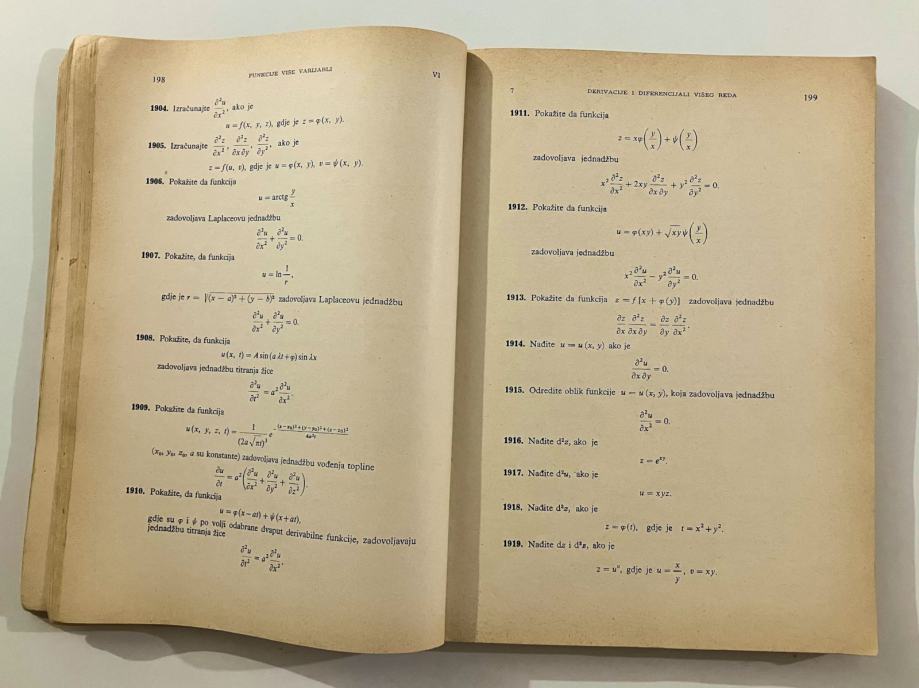 198
FUNKCIJE VIŠE VARIJABLI
VI
1904. Izračunajte ∂²u/∂x², ako je
u = f(x, y, z), gdje je z = φ(x, y).
1905. Izračunajte ∂²z/∂x², ∂²z/∂x∂y, ∂²z/∂y², ako je
z = f(u, v), gdje je u = φ(x, y), v = ψ(x, y).
1906. Pokažite da funkcija
u = arctg y/x
zadovoljava Laplaceovu jednadžbu
∂²u/∂x² + ∂²u/∂y² = 0.
1907. Pokažite, da funkcija
u = ln 1/r,
gdje je r = √(x − a)² + (y − b)² zadovoljava Laplaceovu jednadžbu
∂²u/∂x² + ∂²u/∂y² = 0.
1908. Pokažite, da funkcija
u(x, t) = A sin(a λt + φ) sin λx
zadovoljava jednadžbu titranja žice
∂²u/∂t² = a² ∂²u/∂x².
1909. Pokažite da funkcija
u(x, y, z, t) = 1/(2a √πt)³ e^−((x−x₀)²+(y−y₀)²+(z−z₀)²)/4a²t
(x₀, y₀, z₀, a su konstante) zadovoljava jednadžbu vođenja topline
∂u/∂t = a² (∂²u/∂x² + ∂²u/∂y² + ∂²u/∂z²).
1910. Pokažite, da funkcija
u = φ(x − at) + ψ(x + at),
gdje su φ i ψ po volji odabrane dvaput derivabilne funkcije, zadovoljavaju
jednadžbu titranja žice
∂²u/∂t² = a² ∂²u/∂x².
7
DERIVACIJE I DIFERENCIJALI VIŠEG REDA
199
1911. Pokažite da funkcija
z = xφ(y/x) + ψ(y/x)
zadovoljava jednadžbu
x² ∂²z/∂x² + 2xy ∂²z/∂x∂y + y² ∂²z/∂y² = 0.
1912. Pokažite da funkcija
u = φ(xy) + √xy ψ(y/x)
zadovoljava jednadžbu
x² ∂²u/∂x² − y² ∂²u/∂y² = 0.
1913. Pokažite da funkcija z = f [x + φ (y)] zadovoljava jednadžbu
∂z/∂x ∂²z/∂x∂y = ∂z/∂y ∂²z/∂x².
1914. Nađite u = u (x, y) ako je
∂²u/∂x∂y = 0.
1915. Odredite oblik funkcije u = u (x, y), koja zadovoljava jednadžbu
∂²u/∂x² = 0.
1916. Nađite d²z, ako je
z = e^xy.
1917. Nađite d²u, ako je
u = xyz.
1918. Nađite d²z, ako je
z = φ(t), gdje je t = x² + y².
1919. Nađite dz i d²z, ako je
z = uᵛ, gdje je u = x/y, v = xy.